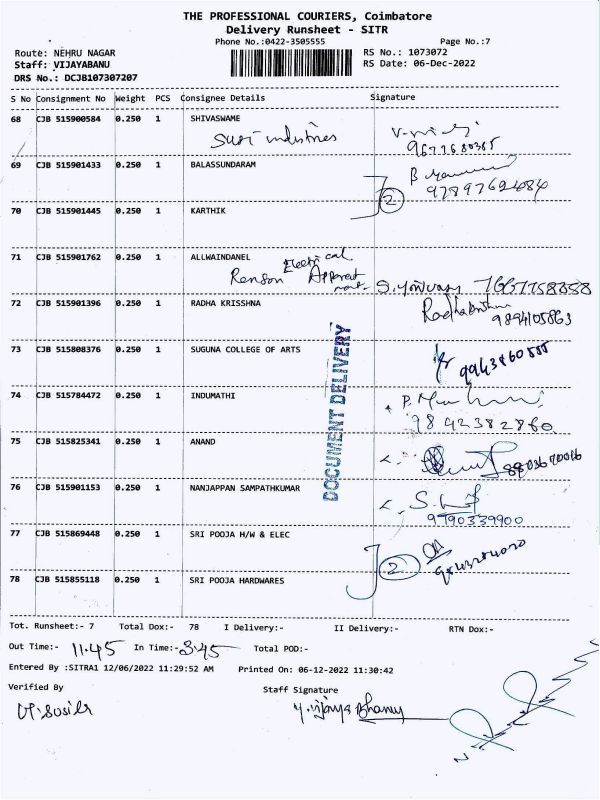 THE PROFESSIONAL COURIERS, Coimbatore
Delivery Runsheet - SITR
Phone No.:0422-3505555 Page No.:7
Route: NEHRU NAGAR RS No.: 1073072
Staff: VIJAYABANU RS Date: 06-Dec-2022
DRS No.: DCJB107307207
S No Consignment No Weight PCS Consignee Details Signature
68 CJB 515900584 0.250 1 SHIVASWAME
Susi industries
69 CJB 515901433 0.250 1 BALASSUNDARAM
9789762484
2
70 CJB 515901445 0.250 1 KARTHIK
71 CJB 515901762 0.250 1 ALLWAINDANEL
Electrical
Renson
72 CJB 515901396 0.250 1 RADHA KRISSHNA
Radhakrishna
9894105863
73 CJB 515808376 0.250 1 SUGUNA COLLEGE OF ARTS
74 CJB 515784472 0.250 1 INDUMATHI
9842382860
75 CJB 515825341 0.250 1 ANAND
76 CJB 515901153 0.250 1 NANJAPPAN SAMPATHKUMAR
9790339900
77 CJB 515869448 0.250 1 SRI POOJA H/W & ELEC
2
78 CJB 515855118 0.250 1 SRI POOJA HARDWARES
DOCUMENT DELIVERY
Tot. Runsheet:- 7 Total Dox:- 78 I Delivery:- II Delivery:- RTN Dox:-
Out Time:- 11.45 In Time:- 3.45 Total POD:-
Entered By :SITRA1 12/06/2022 11:29:52 AM Printed On: 06-12-2022 11:30:42
Verified By Staff Signature
Y. Vijaya Bhanu